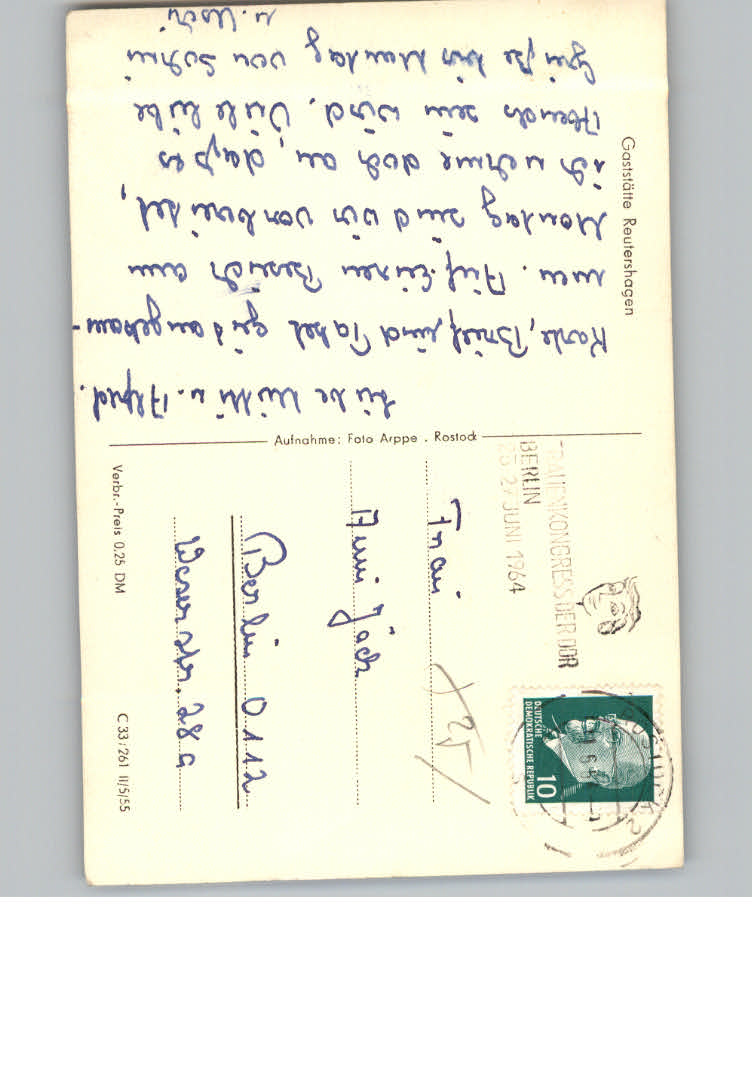 Gaststätte Reutershagen
Liebe Mutti u. Alfred.
Karte, Brief und Paket gut angekom-
men. Auf Euren Besuch am
Montag sind wir vorbereitet,
ich nehme doch an, daß es
Abends sein wird. Viele liebe
Grüße bis Montag von
u. Uschi
Aufnahme: Foto Arppe . Rostock
FRAUENKONGRESS DER DDR
BERLIN
25-27 JUNI 1964
DEUTSCHE
DEMOKRATISCHE REPUBLIK
10
ROSTOCK 2
Frau
Berlin O 112
Weserstr. 28 a
25
Verbr.-Preis 0,25 DM
C 33/261 II/5/55